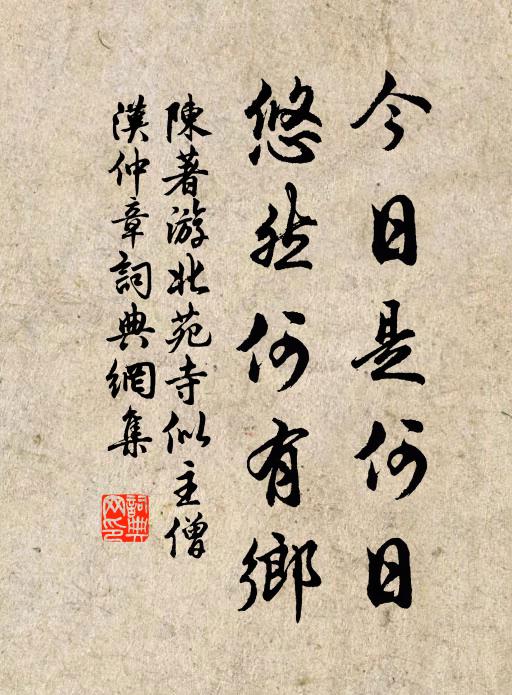 今日是何日
悠然何有鄉
陳著游北苑寺似主僧
漢仲章詞典網集
詞典網印